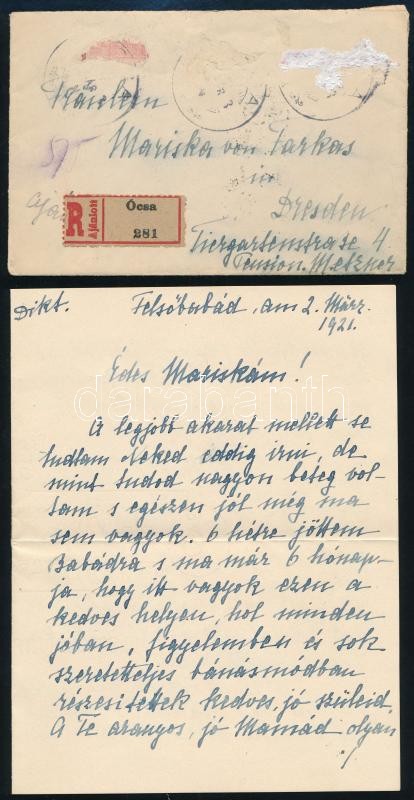 Fräulein
Mariska von Farkas
in
Dresden
Tiergartenstrasse 4.
Pension. Metzner
R
Ajánlott
Ócsa
281
Dikt.
Felsőbabád, am 2. März.
1921.
Édes Mariskám!
A legjobb akarat mellett se
tudtam Neked eddig irni, de
mint tudod nagyon beteg vol-
tam s egészen jól még ma
sem vagyok. 6 hétre jöttem
Babádra s ma már 6 hónap-
ja, hogy itt vagyok ezen a
kedves helyen, hol minden
jóban, figyelemben és sok
szeretetteljes bánásmódban
részesitettek kedves, jó szüleid.
A Te aranyos, jó Mamád olyan
./.
darabanth